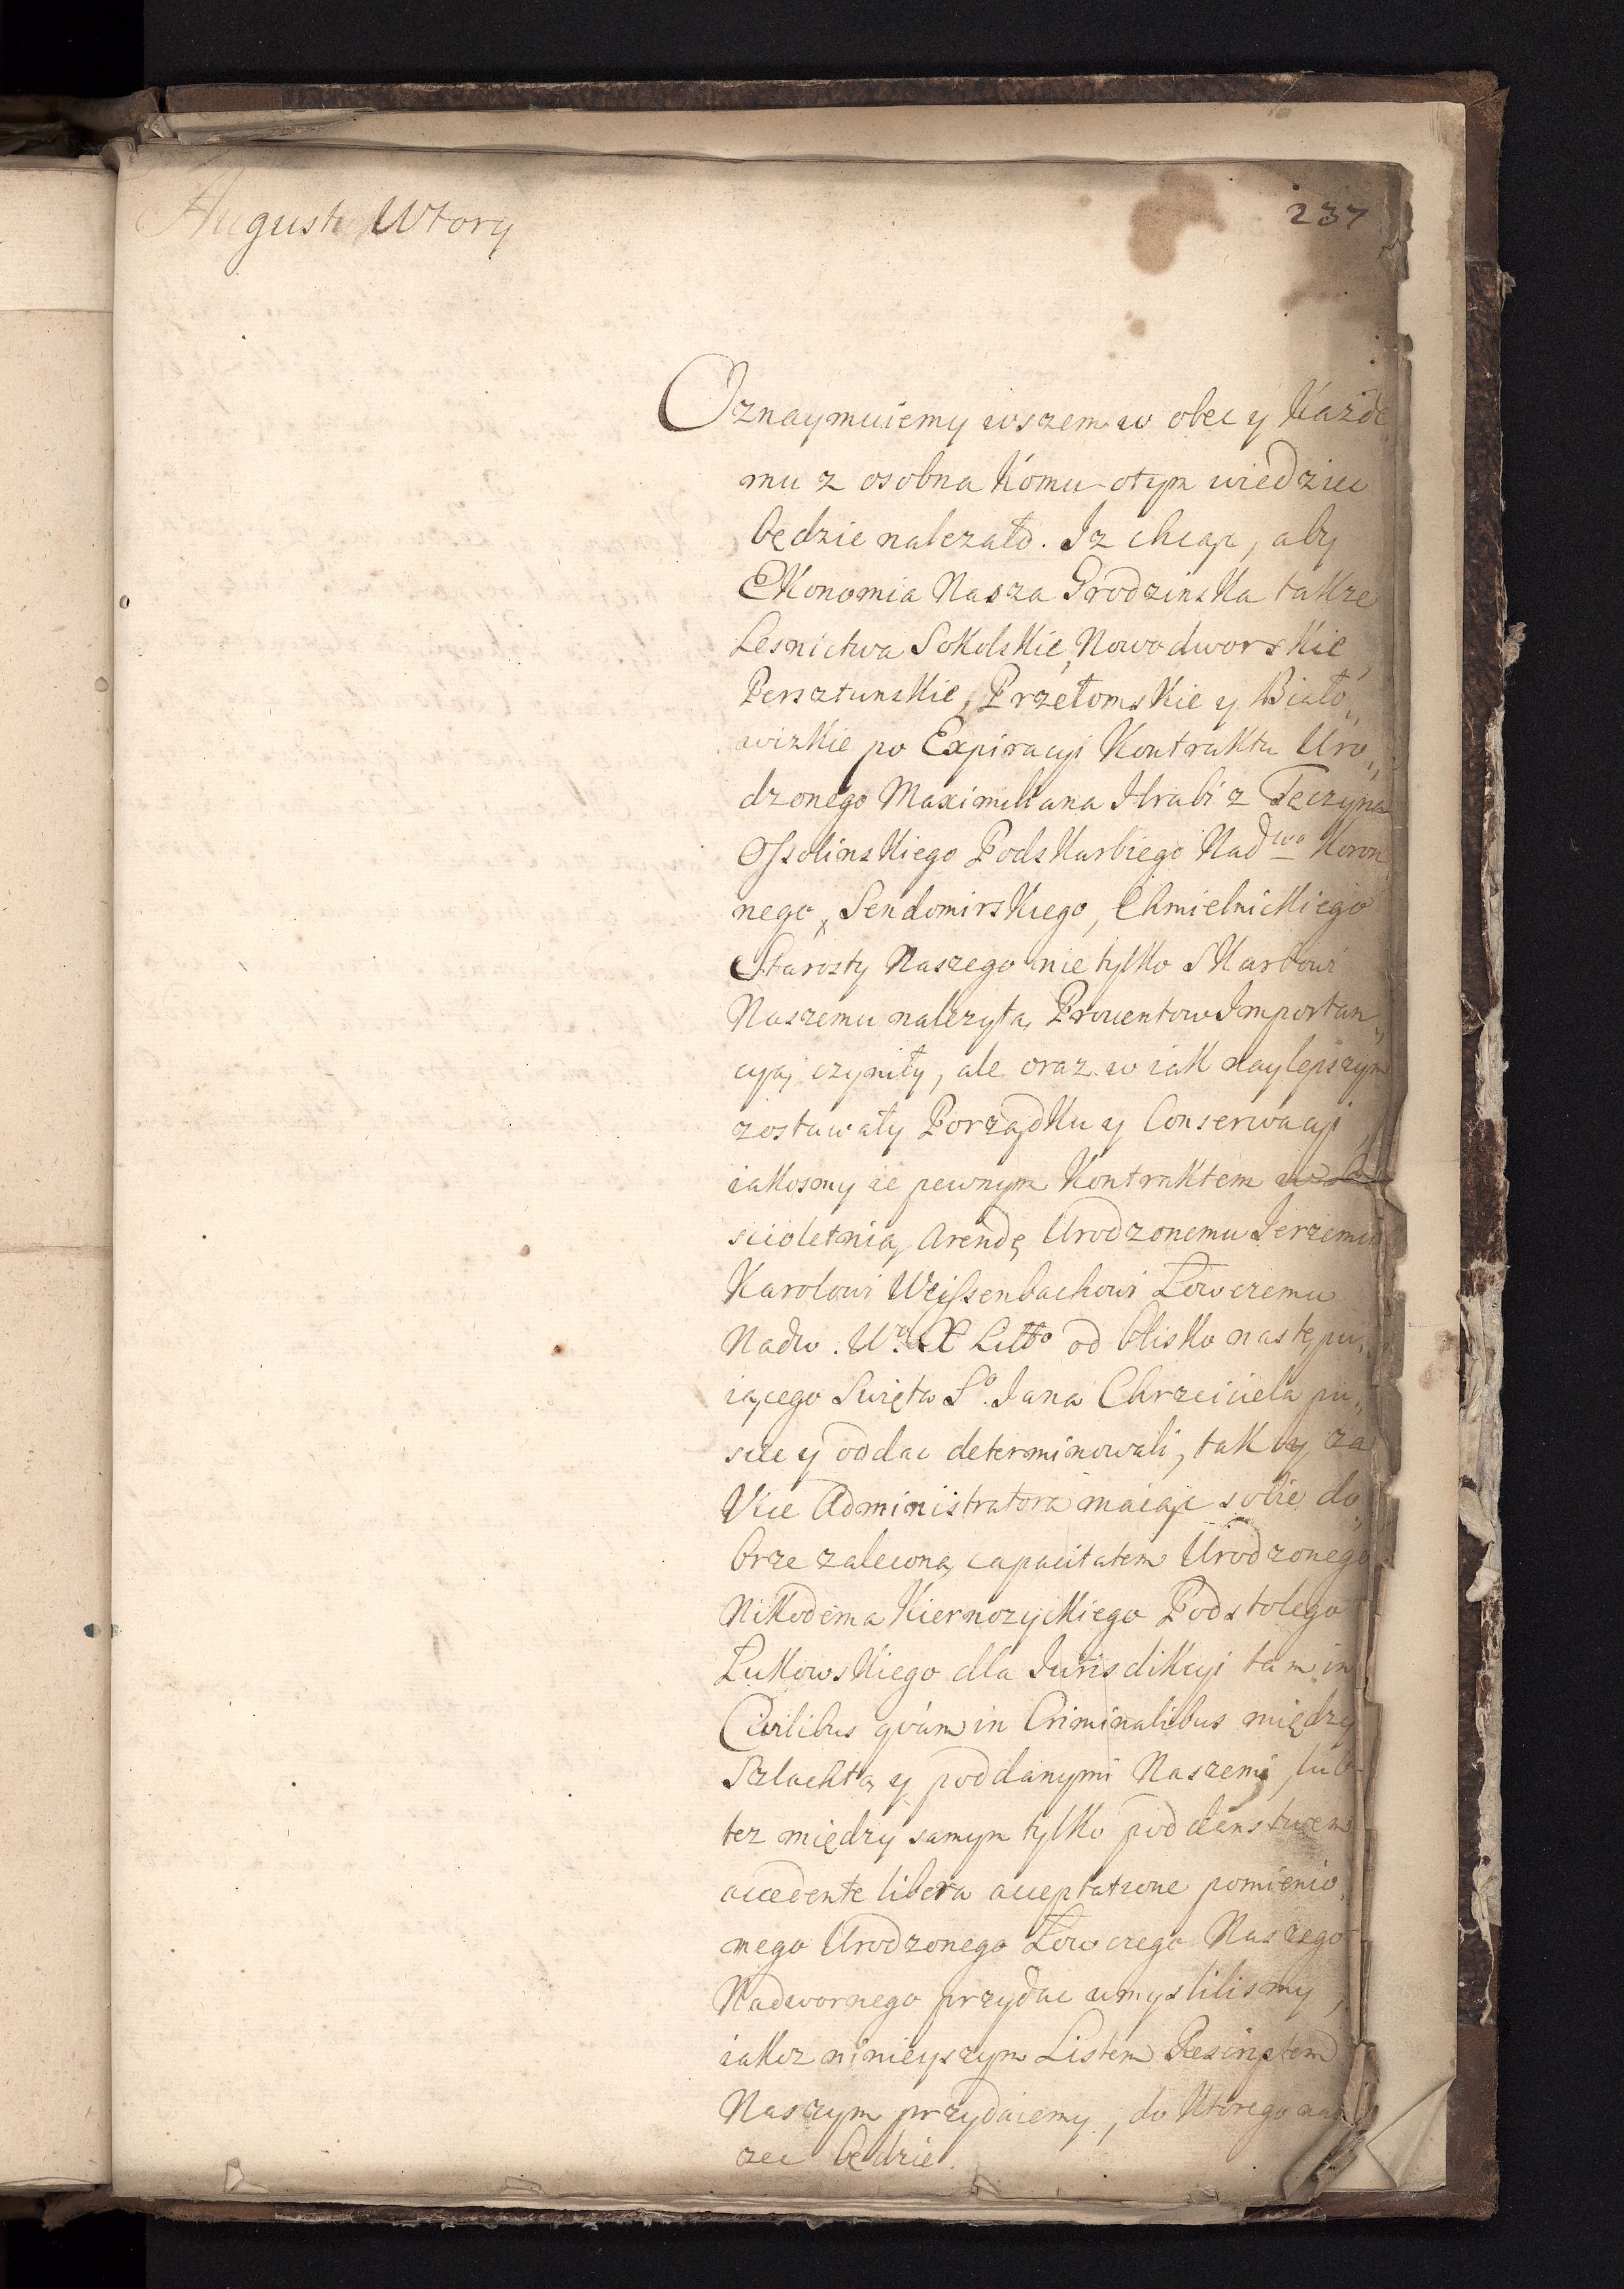 August Wtory
237
Oznaymuiemy wszem w obec y Każde
mu z osobna Komu otym wiedziec
będzie nalezało. Iz chcąc, aby
EKonomia Nasza GrodzinsKa taKze
Lesnictwa SoKolsKie, NowodworsKie
PersztunsKie, PrzełomsKie y Biało„
wizKie po Expiracyi KontraKtu Uro„
dzonego Maximiliana Hrabi z Tęczyna
OssolinsKiego PodsKarbiego Nadwo Koron
nego, SendomirsKiego, ChmielnicKiego
Starosty Naszego nie tylKo SKarbowi
Naszemu nalezytą Prouentow Importan„
cyą czyniły, ale oraz w iaK naylepszym
zostawały PorządKu y Conserwacyi,
iaKosmy ie pewnym KontraKtem w
scioletnią Arendę Urodzonemu Ierzemu
Karolowi Weissenbachowi Łowczemu
Nadw. Wo X Litto od blisKo nastepu„
iącego Swięta So. Iana Chrzciciela pu„
scic y oddac determinowali, taK y za
Vice Administratora maiąc sobie do„
brze zaleconą capacitatem Urodzonego
NiKodema KiernozycKiego Podstolego
ŁuKowsKiego dla IurisdiKcyi tam in
Civilibus qvam in Criminalibus między
Szlachtą y poddanymi Naszemi, lub
tez między samym tylKo poddanstwem
accedente libera acceptatione pomienio„
nego Urodzonego Łowczego Naszego
Nadwornego przydac umyslilismy,
iaKoz ninieyszym Listem Rescriptem
Naszym przydaiemy, do Ktorego
zec będzie.